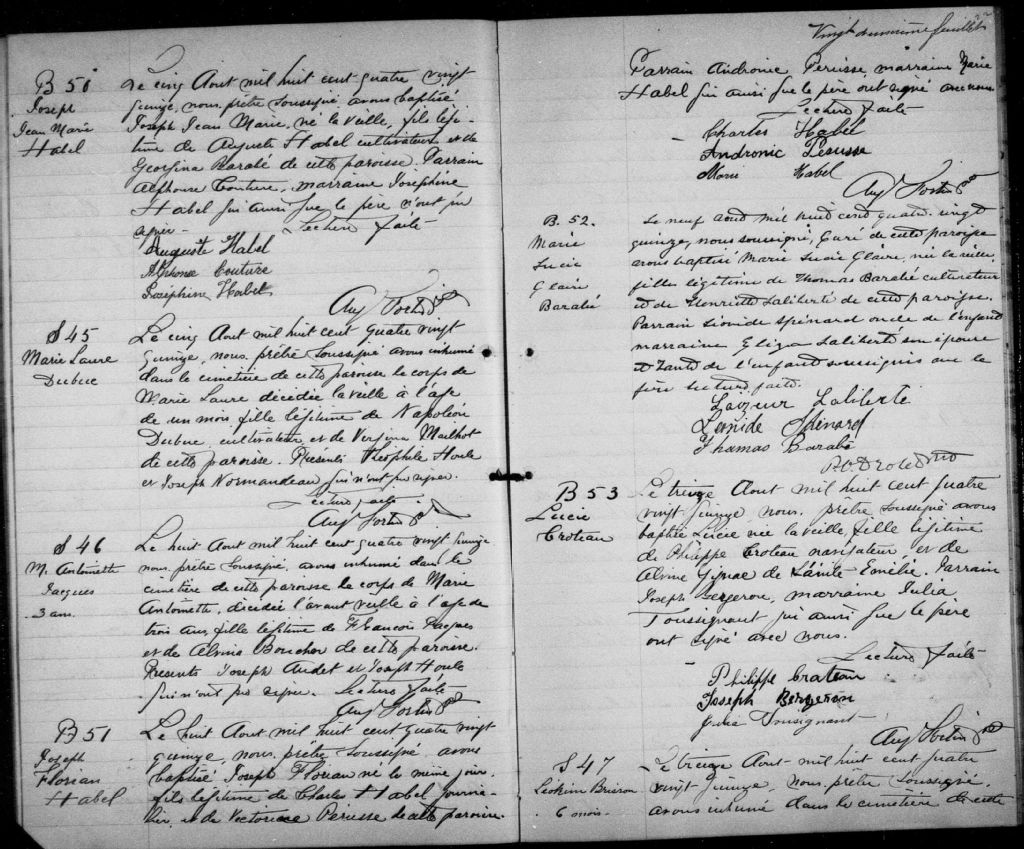 B 50
Joseph
Jean Marie
Habel
Le cinq Aout mil huit cent quatre vingt
quinze, nous, prêtre soussigné avons baptisé
Joseph Jean Marie, né la veille, fils légi-
time de Auguste Habel cultivateur et de
Georgina Barabé de cette paroisse. Parrain
Alphonse Couture, marraine Joséphine
Habel qui ainsi que le père n'ont pu
signer. Lecture faite
Auguste Habel
Alphonse Couture
Joséphine Habel
Aug Fortin Ptre
S 45
Marie Laure
Dubuc
Le cinq Aout mil huit cent quatre vingt
quinze, nous, prêtre soussigné avons inhumé
dans le cimetière de cette paroisse le corps de
Marie Laure décédée la veille à l'age
de un mois fille légitime de Napoléon
Dubuc, cultivateur, et de Virginia Mailhot
de cette paroisse. Présents Théophile Houle
et Joseph Normandeau qui n'ont pu signer.
Lecture faite
Aug Fortin Ptre
S 46
M. Antoinette
Jacques
3 ans.
Le huit Aout mil huit cent quatre vingt quinze
nous, prêtre soussigné, avons inhumé dans le
cimetière de cette paroisse le corps de Marie
Antoinette, décédée l'avant veille à l'age de
trois ans, fille légitime de François Jacques
et de Alvina Boucher de cette paroisse.
Présents Joseph Audet et Joseph Houle
qui n'ont pu signer. Lecture faite
Aug Fortin Ptre
B 51
Joseph
Florian
Habel
Le huit Aout mil huit cent quatre vingt
quinze, nous, prêtre soussigné avons
baptisé Joseph Florian né le même jour
fils légitime de Charles Habel journa-
lier, et de Victorine Perusse de cette paroisse.
Vingt deuxième feuillet
Parrain Andronic Perusse, marraine Marie
Habel qui ainsi que le père ont signé avec nous
Lecture faite
Charles Habel
Andronic Perusse
Marie Habel
Aug Fortin Ptre
B. 52.
Marie
Lucie
Claire
Barabé
Le neuf aout mil huit cent quatre vingt
quinze, nous soussigné, Curé de cette paroisse
avons baptisé Marie Lucie Claire, née la veille,
fille légitime de Thomas Barabé cultivateur
et de Henriette Laliberté de cette paroisse.
Parrain Léonide Spénard oncle de l'enfant
marraine Eliza Laliberté son épouse
et Tante de l'enfant soussignés avec le
père lecture faite.
Laliberté
Leonide Spénard
Thomas Barabé
Drolet Ptre
B 53
Lucie
Croteau
Le treize Aout mil huit cent quatre
vingt quinze nous, prêtre soussigné avons
baptisé Lucie née la veille, fille légitime
de Philippe Croteau navigateur, et de
Alvine Gignac de Sainte-Emélie. Parrain
Joseph Bergeron, marraine Julia
Tousignant qui ainsi que le père
ont signé avec nous.
Lecture faite
Philippe Croteau
Joseph Bergeron
Julia Tousignant
Aug Fortin Ptre
S 47
6 mois.
Le treize Aout mil huit cent quatre
vingt quinze, nous, prêtre soussigné,
avons inhumé dans le cimetière de cette